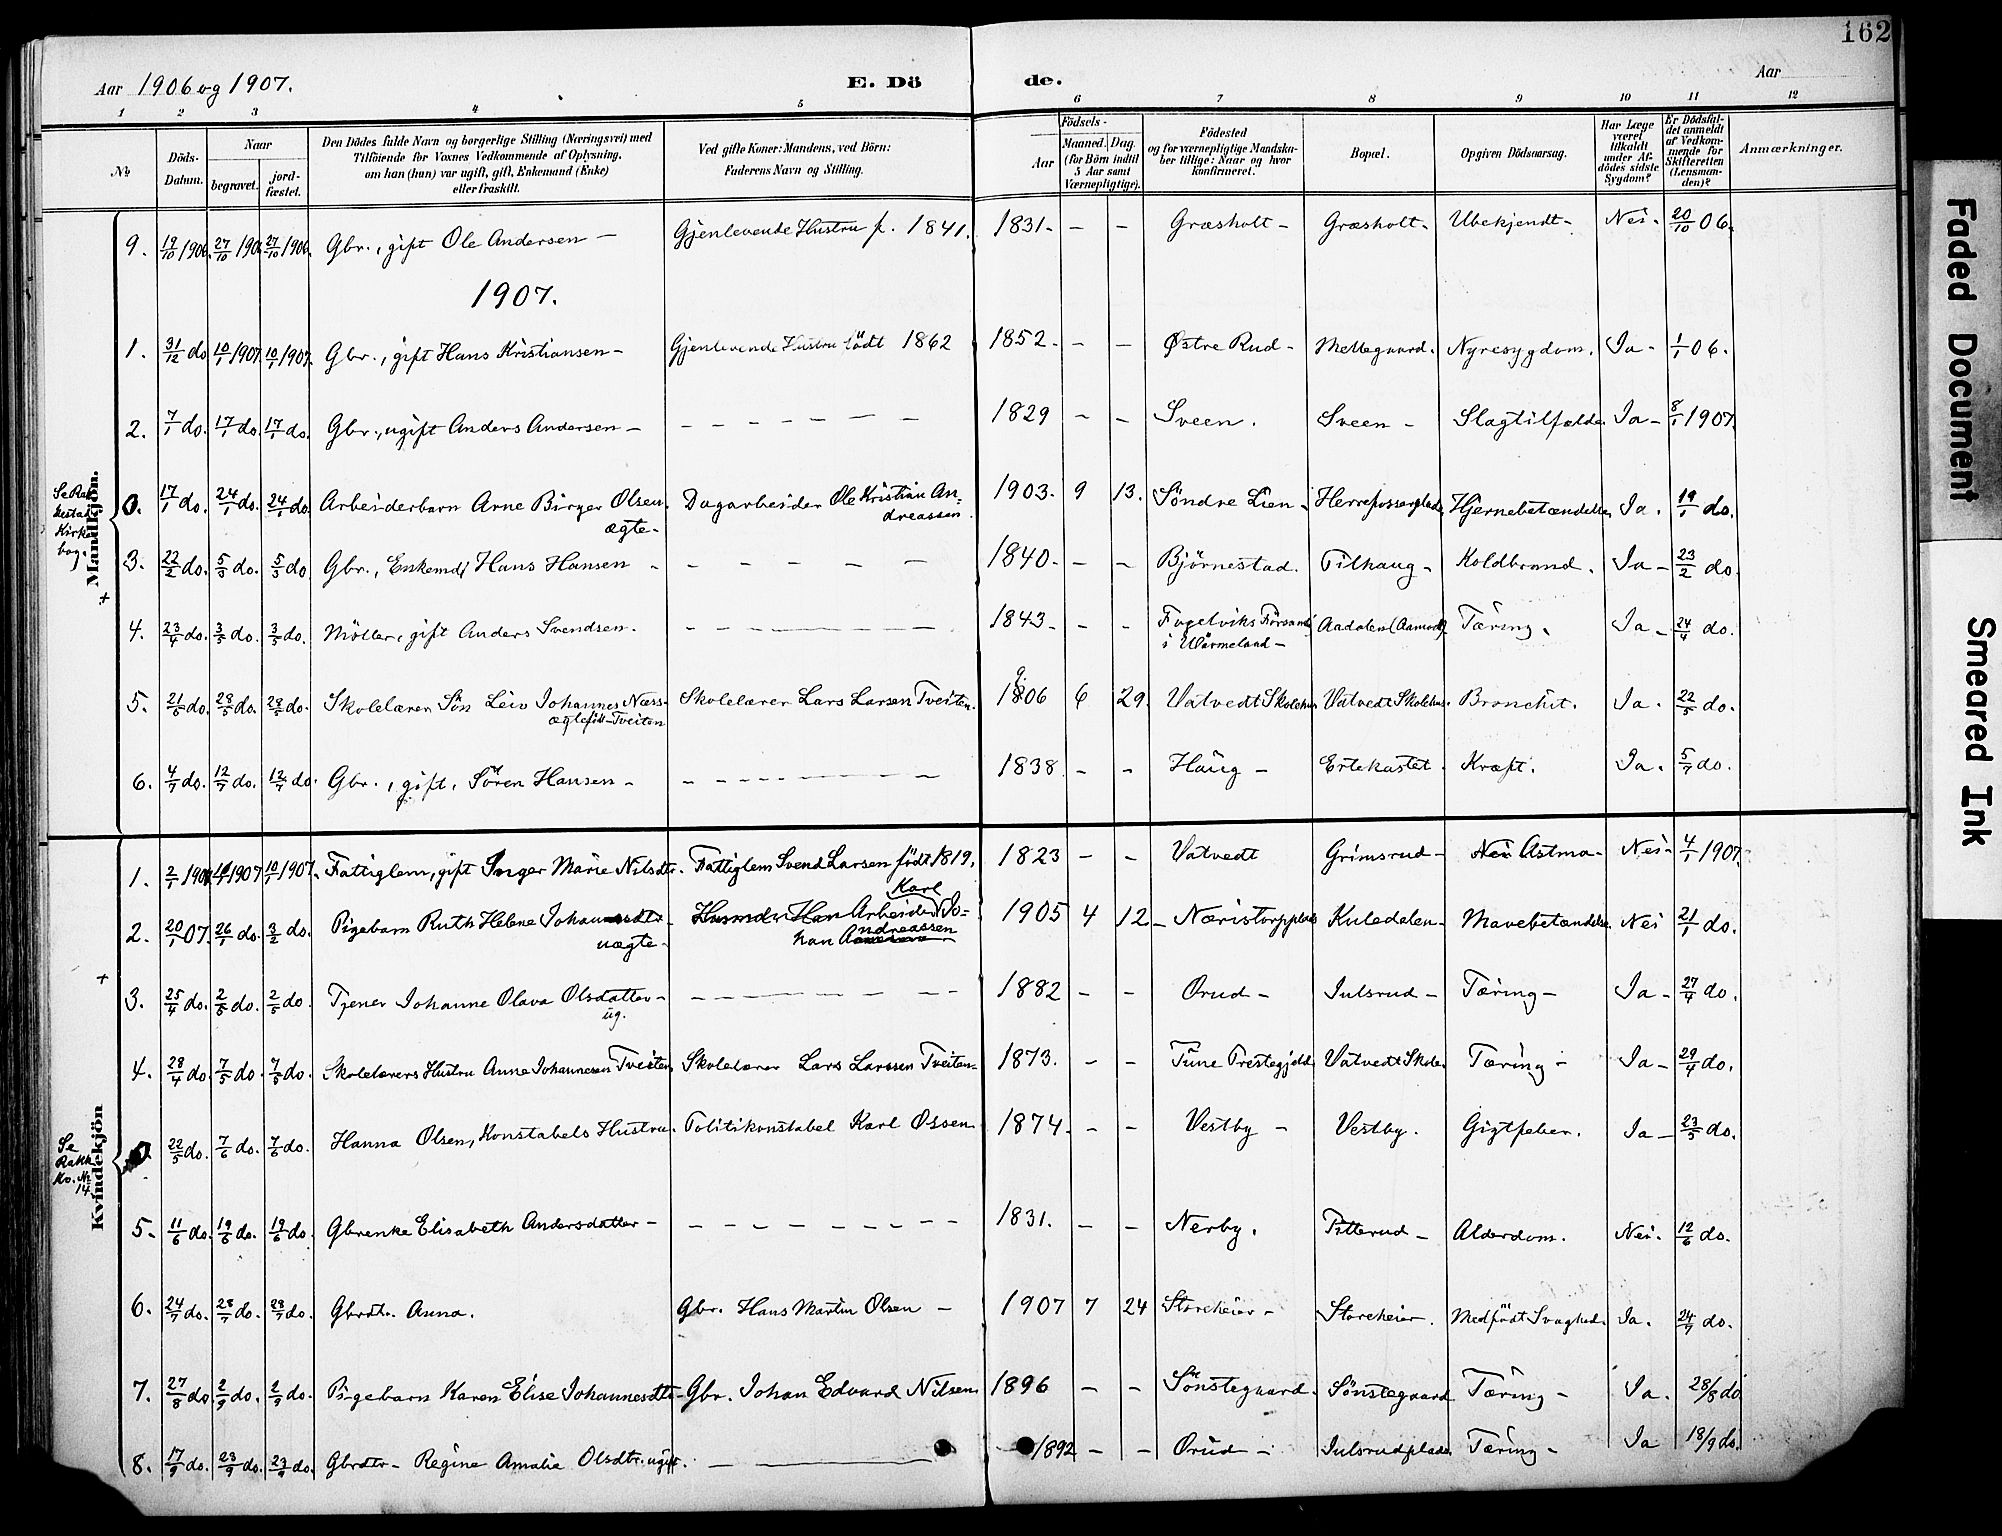 162
Aar 1906 og 1907.
E. Dö de.
Aar
1 2 3 4 5 6 7 8 9 10 11 12
No
Döds-Datum.
Naar
begravet.
jord-fæstet.
Den Dödes fulde Navn og borgerlige Stilling (Næringsvei) med
Tilföiende for Voxnes Vedkommende af Oplysning,
om han (hun) var ugift, gift, Enkemand (Enke)
eller fraskilt.
Ved gifte Koner: Mandens, ved Börn:
Faderens Navn og Stilling.
Födsels-
Aar
Maaned. Dag.
(for Börn indtil
5 Aar samt
Værnepligtige).
Födested
og for værnepligtige Mandska-
ber tillige: Naar og hvor
konfirmeret.
Bopæl.
Opgiven Dödsaarsag.
Har Læge
været
tilkaldt
under Af-
dödes sidste
Sygdom?
Er Dödsfal-
det anmeldt
af Vedkom-
mende for
Skifteretten
(Lensman-
den)?
Anmærkninger.
Mandkjön.
9. 19/10 1906. 27/10 1906 27/10 1906. Gbr., gift Ole Andersen – Gjenlevende Hustru f. 1841. 1831. – – Græsholt – Græsholt – Ubekjendt – Nei. 20/10 06.
1907.
1. 31/12 do 10/1 1907. 10/1 1907. Gbr., gift Hans Kristiansen – Gjenlevende Hustru födt 1862 1852. – – Østre Rud – Mellegaard. Nyresygdom. Ja – 1/1 06.
2. 7/1 do. 17/1 do. 17/1 do. Gbr., ugift Anders Andersen – – – – – – – 1829 – – Sveen. Sveen – Slagtilfælde Ja – 8/1 1907.
0. 17/1 do. 24/1 do. 24/1 do. Arbeiderbarn Arne Birger Olsen, Dagarbeider Ole Kristian An- 1903. 9 13. Söndre Lien – Hjernebetændelse Ja. 19/1 do.
ægte – dreassen.
bog.
3. 22/2 do. 5/3 do. 5/3 do Gbr., Enkemd, Hans Hansen – – – – – – 1840. – – Björnestad. Tilhaug – Koldbrand. Ja – 23/2 do.
4. 23/4 do. 3/5 do. 3/5 do. Möller, gift Anders Svendsen. – – – – – – 1843. – – Aadalen Tæring. Ja – 24/4 do.
i Wärmeland –
5. 21/5 do. 28/5 do. 28/5 do. Skolelærer Sön Leiv Johannes Næss- Skolelærer Lars Larsen Tveiten. 1906 6 29. Vatvedt Skolehus Vatvedt Skolehus. Bronchit. Ja. 22/5 do.
ægtefödt Tveiten
6. 4/7 do. 12/7 do. 12/7 do. Gbr., gift, Sören Hansen – – – – – – 1838 – – Haug – Ertekastet. Kræft. Ja. 5/7 do.
Kvindekjön
1. 2/1 1907 10/1 1907. Fattiglem, gift Inger Marie Nilsdtr. Fattiglem Svend Larsen födt 1819, 1823 – – Vatvedt Grimsrud – Nei Astma – Nei – 4/1 1907.
Karl
2. 20/1 07. 26/1 do. 3/2 do. Pigebarn Ruth Helene Arbeider Jo- 1905 4 12 – Kuledalen – Mavebetændelse Nei 21/1 do.
uægte – han Andreassen
3. 25/4 do. 2/5 do. 2/5 do. Tjener Johanne Olava Olsdatter – – – – – – 1882 – – Orud – Julsrud – Tæring – Ja – 27/4 do.
ug.
4. 28/4 do. 7/5 do. 7/5 do. Skolelærers Hustru Anne Johannesen Tveiten, Skolelærer Lars Larssen Tveiten – 1873. – – Tune Prestegjeld Vatvedt Skole. Tæring – Ja – 29/4 do.
Se
Rakk.
Kb. No
14
22/5 do. 7/6 do. 7/6 do. Hanna Olsen, Konstabels Hustru. Politikonstabel Karl Olsen 1874. – – Vestby – Vestby. Gigtfeber. Ja – 23/5 do.
5. 11/6 do. 19/6 do. 19/6 do. Gbrenke Elisabeth Andersdatter – – – – – – – 1831. – – Nerby. Pitterud – Alderdom. Nei. 12/6 do.
6. 24/7 do. 28/7 do. 28/7 do. Gbrdtr. Anna. Gbr. Hans Martin Olsen – 1907 7 24 Storeheier – Storeheier. Medfödt Svaghed. Ja. 24/7 do.
7. 27/8 do. 2/9 do. 2/9 do. Pigebarn Karen Elise Johannesdtr – Gbr. Johan Edvard Nilsen. 1896 – – Sönstegaard. Sönstegaard Tæring – Ja. 28/8 do
8. 17/9 do. 23/9 do. 23/9 do. Gbrdtr – Regine Amalie Olsdtr. ugift. – 1892 – – Orud – Julsrudplads. Tæring – Ja 18/9 do.
Faded Document
Smeared Ink